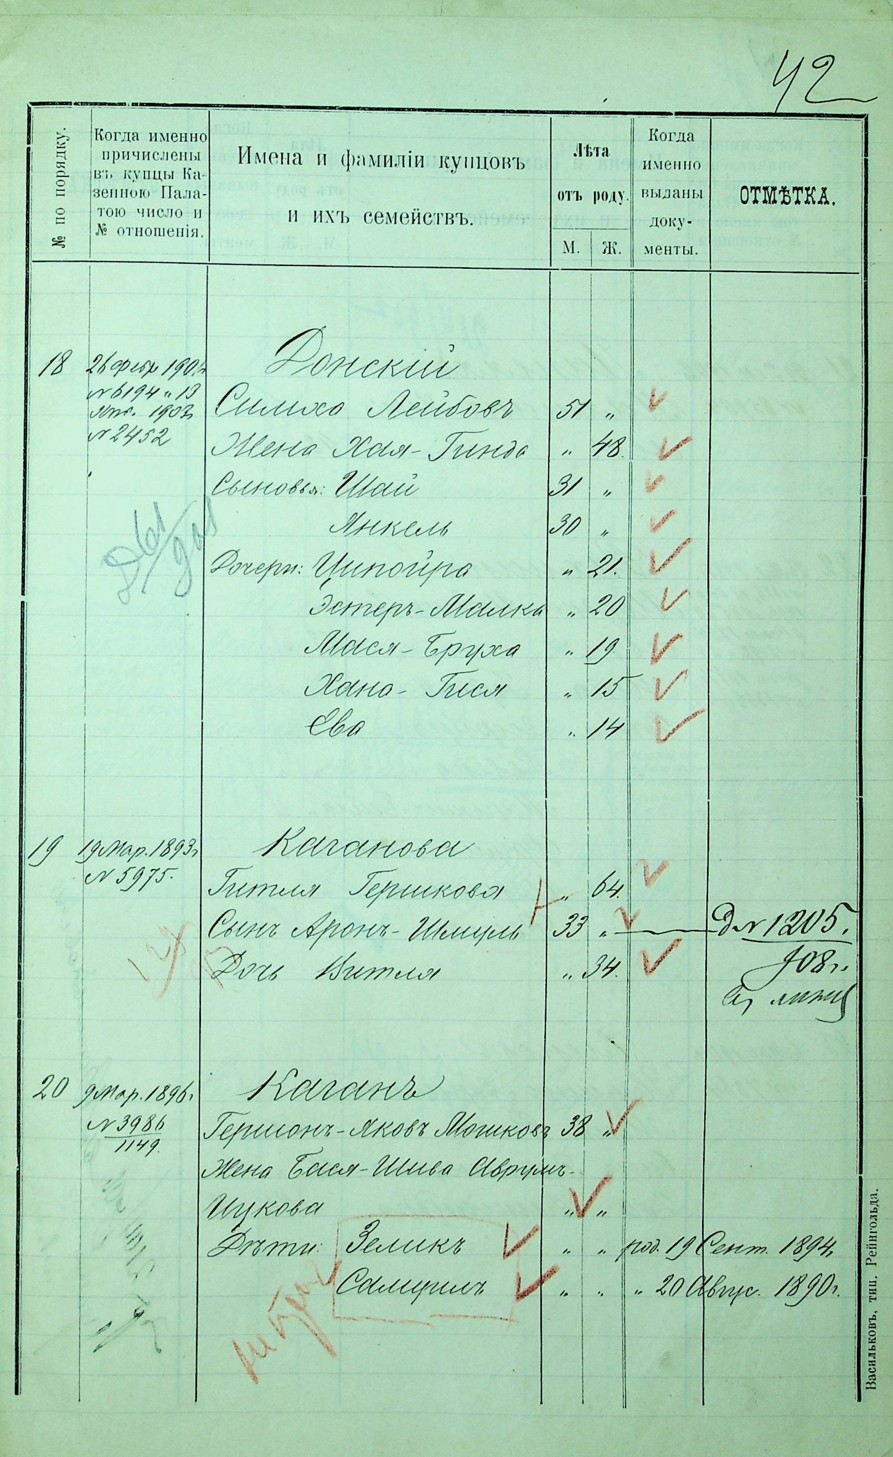 42
№ по порядку.
Когда именно
причислены
въ купцы Ка-
зенною Пала-
тою число и
№ отношенія.
Имена и фамиліи купцовъ
и ихъ семействъ.
Лѣта
отъ роду.
М. Ж.
Когда
именно
выданы
доку-
менты.
ОТМѢТКА.
18 26 Февр. Донскій
№ 6194 " 13
1903 Симха Лейбовъ 51 "
№ 2452 Жена Хая-Гинда " 48.
Сыновья: Шай 31 "
Янкель 30 "
Дочери: Ципойра " 21.
Эстеръ-Малка " 20
Мася-Бруха " 19
Хана-Гися " 15
Ева " 14
19 19 Мар. 1893 г. Каганова
№ 5975. Гитля Гершкова " 64.
Сынъ Аронъ-Шмуль 33 " Д № 1205.
908 г.
Дочь Витля " 34.
20 9 Мар. 1896 г. Каганъ
№ 3986 Гершонъ-Яковъ Мошковъ 38 "
1149.
Жена Бася-Шива Аврумъ-
Ицкова " "
Дѣти: Зеликъ " " род. 19 Сент. 1894
Самуилъ " " " 20 Авгус. 1890 г.
Васильковъ, тип. Рейнгольда.